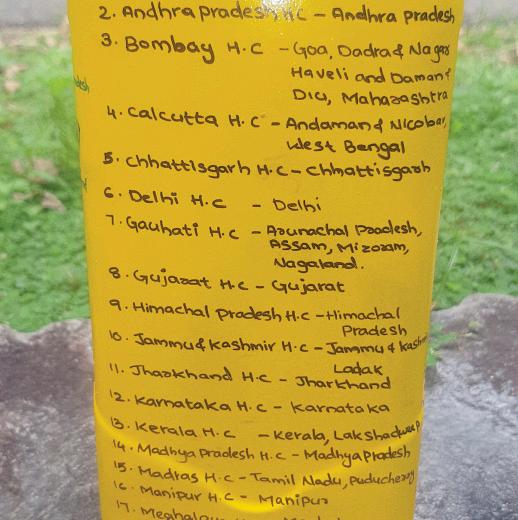 2. Andhra pradesh H.C - Andhra pradesh
3. Bombay H.C - Goa, Dadra & Nagar
Haveli and Daman &
Diu, Maharashtra
4. Calcutta H.C - Andaman & Nicobar,
West Bengal
5. Chhattisgarh H.C - Chhattisgarh
6. Delhi H.C - Delhi
7. Gauhati H.C - Arunachal Pradesh,
Assam, Mizoram,
Nagaland.
8. Gujarat H.C - Gujarat
9. Himachal Pradesh H.C - Himachal
Pradesh
10. Jammu & Kashmir H.C - Jammu & Kashm
Ladak
11. Jharkhand H.C - Jharkhand
12. Karnataka H.C - Karnataka
13. Kerala H.C - Kerala, Lakshadweep
14. Madhya Pradesh H.C - Madhya Pradesh
15. Madras H.C - Tamil Nadu, Puducherry
16. Manipur H.C - Manipur
17.